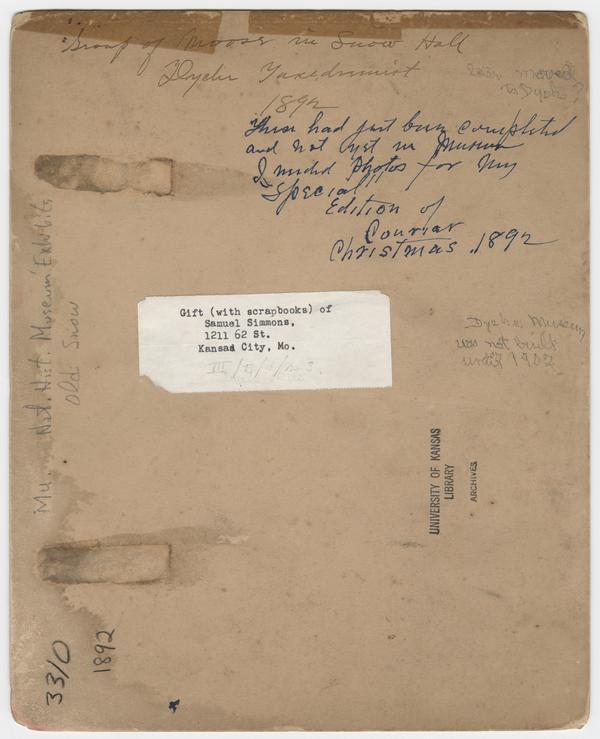 Group of Moose in Snow Hall
Dyche Taxedermist
1892
ever moved
to Dyche?
These had just been completed
and not yet in Museum
I needed Photos for my
"Special"
Edition of
Courier
Christmas, 1892
Gift (with scrapbooks) of
Samuel Simmons,
1211 62 St.
Kansas City, Mo.
Dyche Museum
was not built
until 1902
Mu. Nat. Hist. Museum Exhibits
Old Snow
UNIVERSITY OF KANSAS
LIBRARY
ARCHIVES
33/0
1892